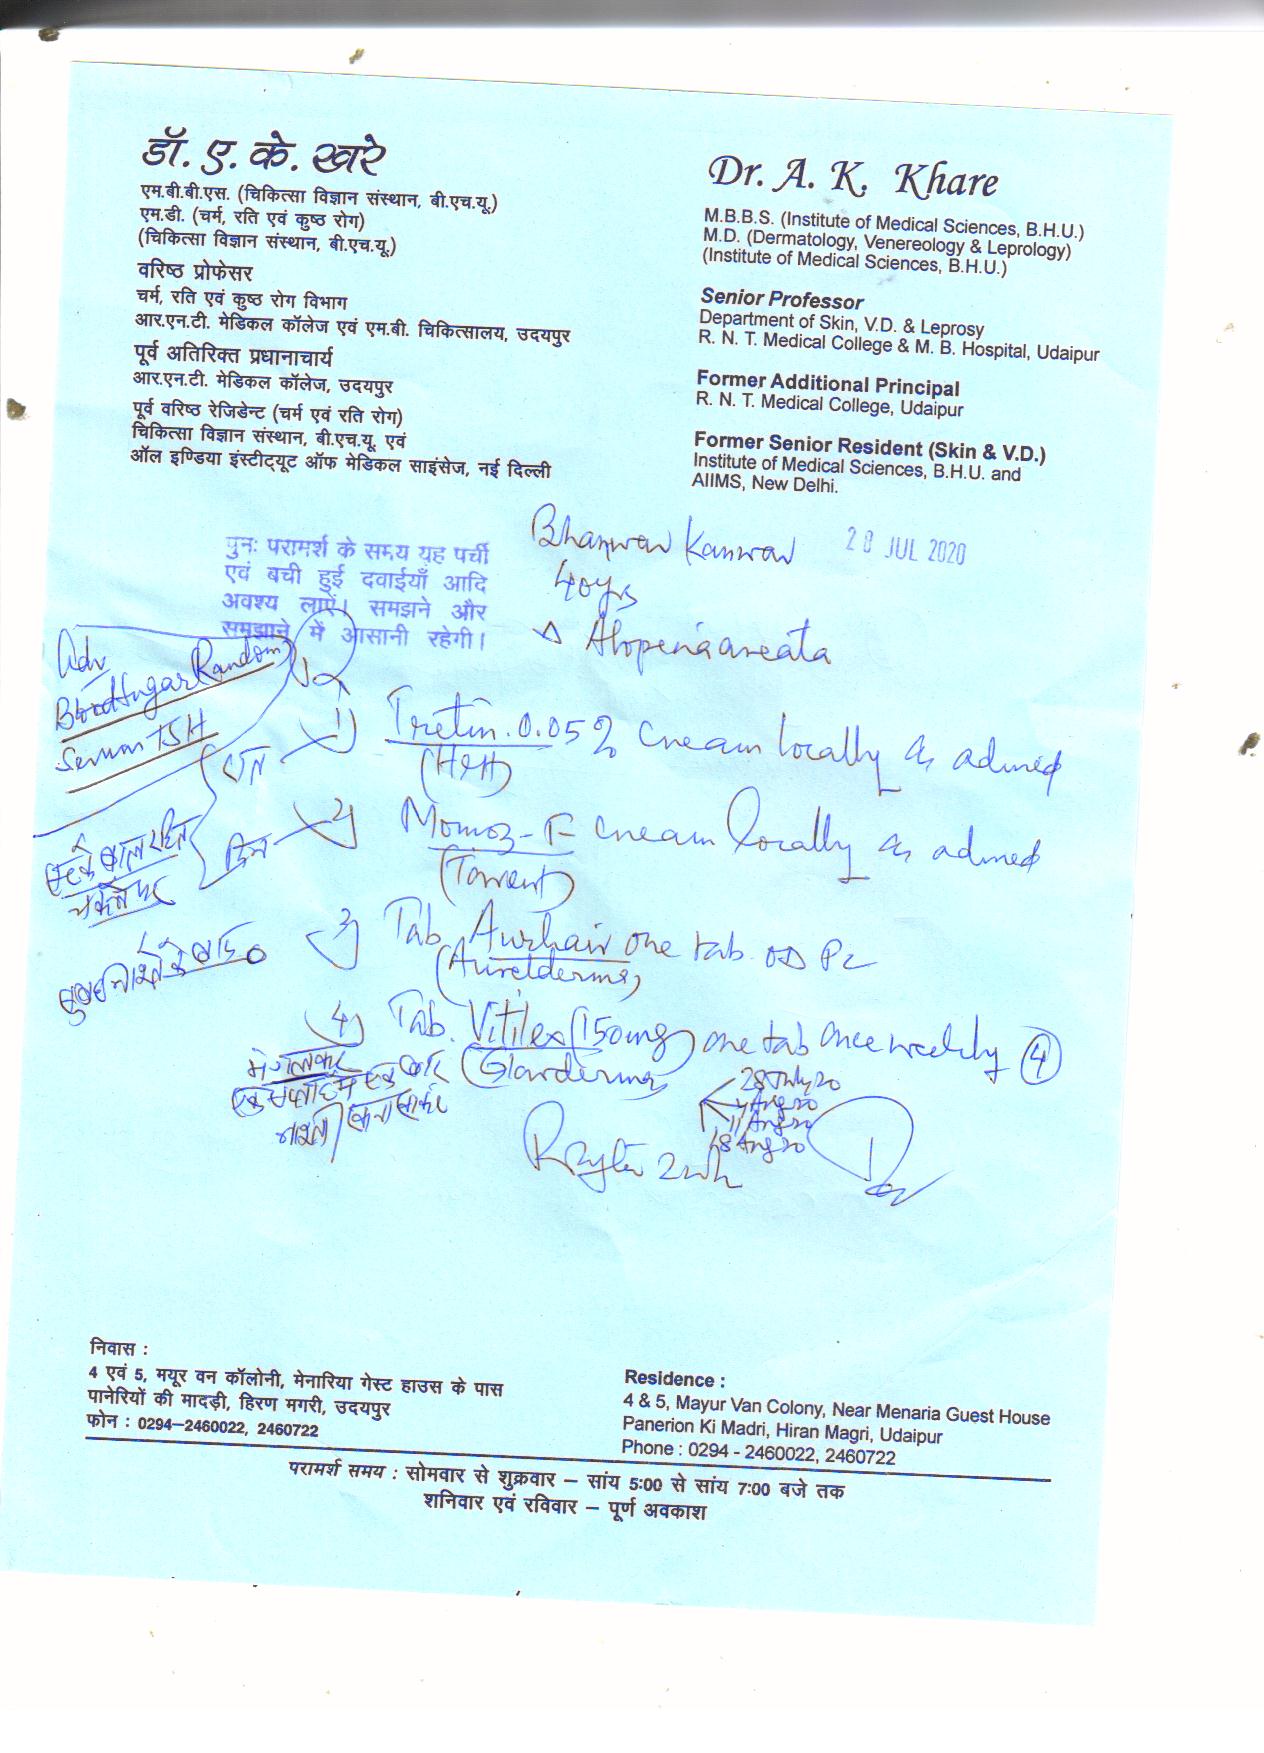 डॉ. ए. के. खरे
एम.बी.बी.एस. (चिकित्सा विज्ञान संस्थान, बी.एच.यू.)
एम.डी. (चर्म, रति एवं कुष्ठ रोग)
(चिकित्सा विज्ञान संस्थान, बी.एच.यू.)
वरिष्ठ प्रोफेसर
चर्म, रति एवं कुष्ठ रोग विभाग
आर.एन.टी. मेडिकल कॉलेज एवं एम.बी. चिकित्सालय, उदयपुर
पूर्व अतिरिक्त प्रधानाचार्य
आर.एन.टी. मेडिकल कॉलेज, उदयपुर
पूर्व वरिष्ठ रेजिडेन्ट (चर्म एवं रति रोग)
चिकित्सा विज्ञान संस्थान, बी.एच.यू. एवं
ऑल इण्डिया इंस्टीट्यूट ऑफ मेडिकल साइंसेज, नई दिल्ली
Dr. A. K. Khare
M.B.B.S. (Institute of Medical Sciences, B.H.U.)
M.D. (Dermatology, Venereology & Leprology)
(Institute of Medical Sciences, B.H.U.)
Senior Professor
Department of Skin, V.D. & Leprosy
R. N. T. Medical College & M. B. Hospital, Udaipur
Former Additional Principal
R. N. T. Medical College, Udaipur
Former Senior Resident (Skin & V.D.)
Institute of Medical Sciences, B.H.U. and
AIIMS, New Delhi.
पुनः परामर्श के समय यह पर्ची
एवं बची हुई दवाईयाँ आदि
अवश्य लाऐं। समझने और
समझाने में आसानी रहेगी।
Bhanwar Kanwar
28 JUL 2020
40yrs
Δ Alopecia areata
Adv
Blood Sugar Random
Serum TSH
1) Tretin 0.05% cream locally as advised
(H&H)
रात
2) Momoz-F cream locally as advised
(Torrent)
दिन
3) Tab. Aurhair one tab. OD PC
(Aurelderms)
4) Tab. Vitilex (150mg) one tab once weekly (4)
(Glanderma)
28 July 20
4 Aug 20
11 Aug 20
18 Aug 20
मंगलवार
R after 2 wk
निवास :
4 एवं 5, मयूर वन कॉलोनी, मेनारिया गेस्ट हाउस के पास
पानेरियों की मादड़ी, हिरण मगरी, उदयपुर
फोन : 0294–2460022, 2460722
Residence :
4 & 5, Mayur Van Colony, Near Menaria Guest House
Panerion Ki Madri, Hiran Magri, Udaipur
Phone : 0294 - 2460022, 2460722
परामर्श समय : सोमवार से शुक्रवार – सांय 5:00 से सांय 7:00 बजे तक
शनिवार एवं रविवार – पूर्ण अवकाश